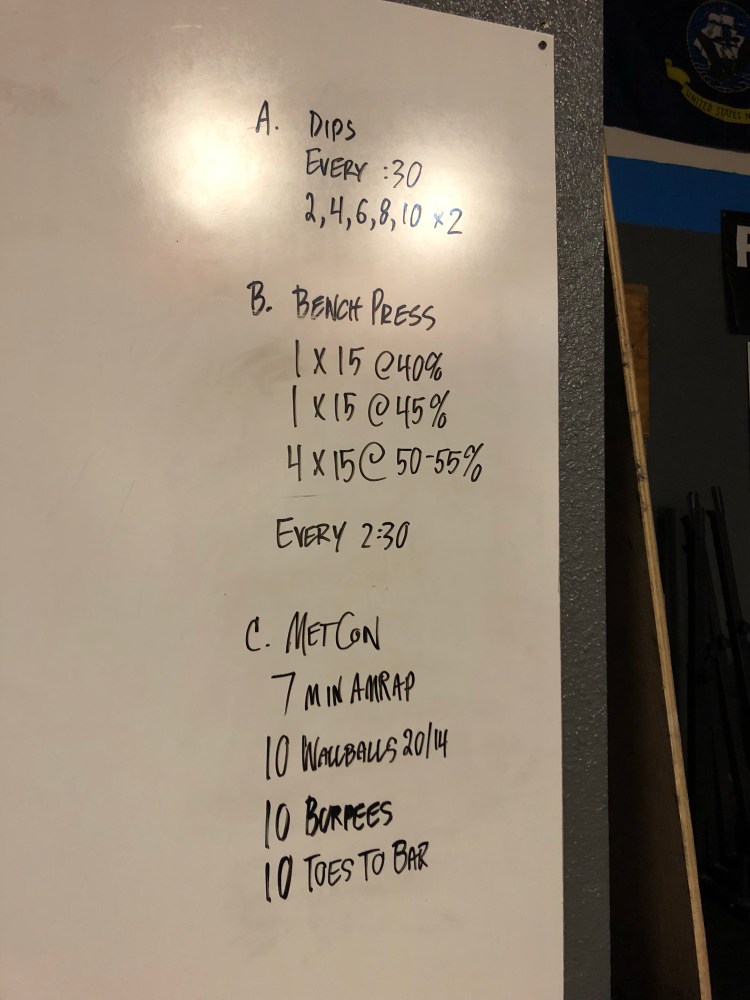 A. DIPS
EVERY :30
2,4,6,8,10 x2
B. BENCH PRESS
1 X 15 @40%
1 X 15 @45%
4 X 15 @ 50-55%
EVERY 2:30
C. METCON
7 MIN AMRAP
10 WALLBALLS 20/14
10 BURPEES
10 TOES TO BAR
UNITED STATES